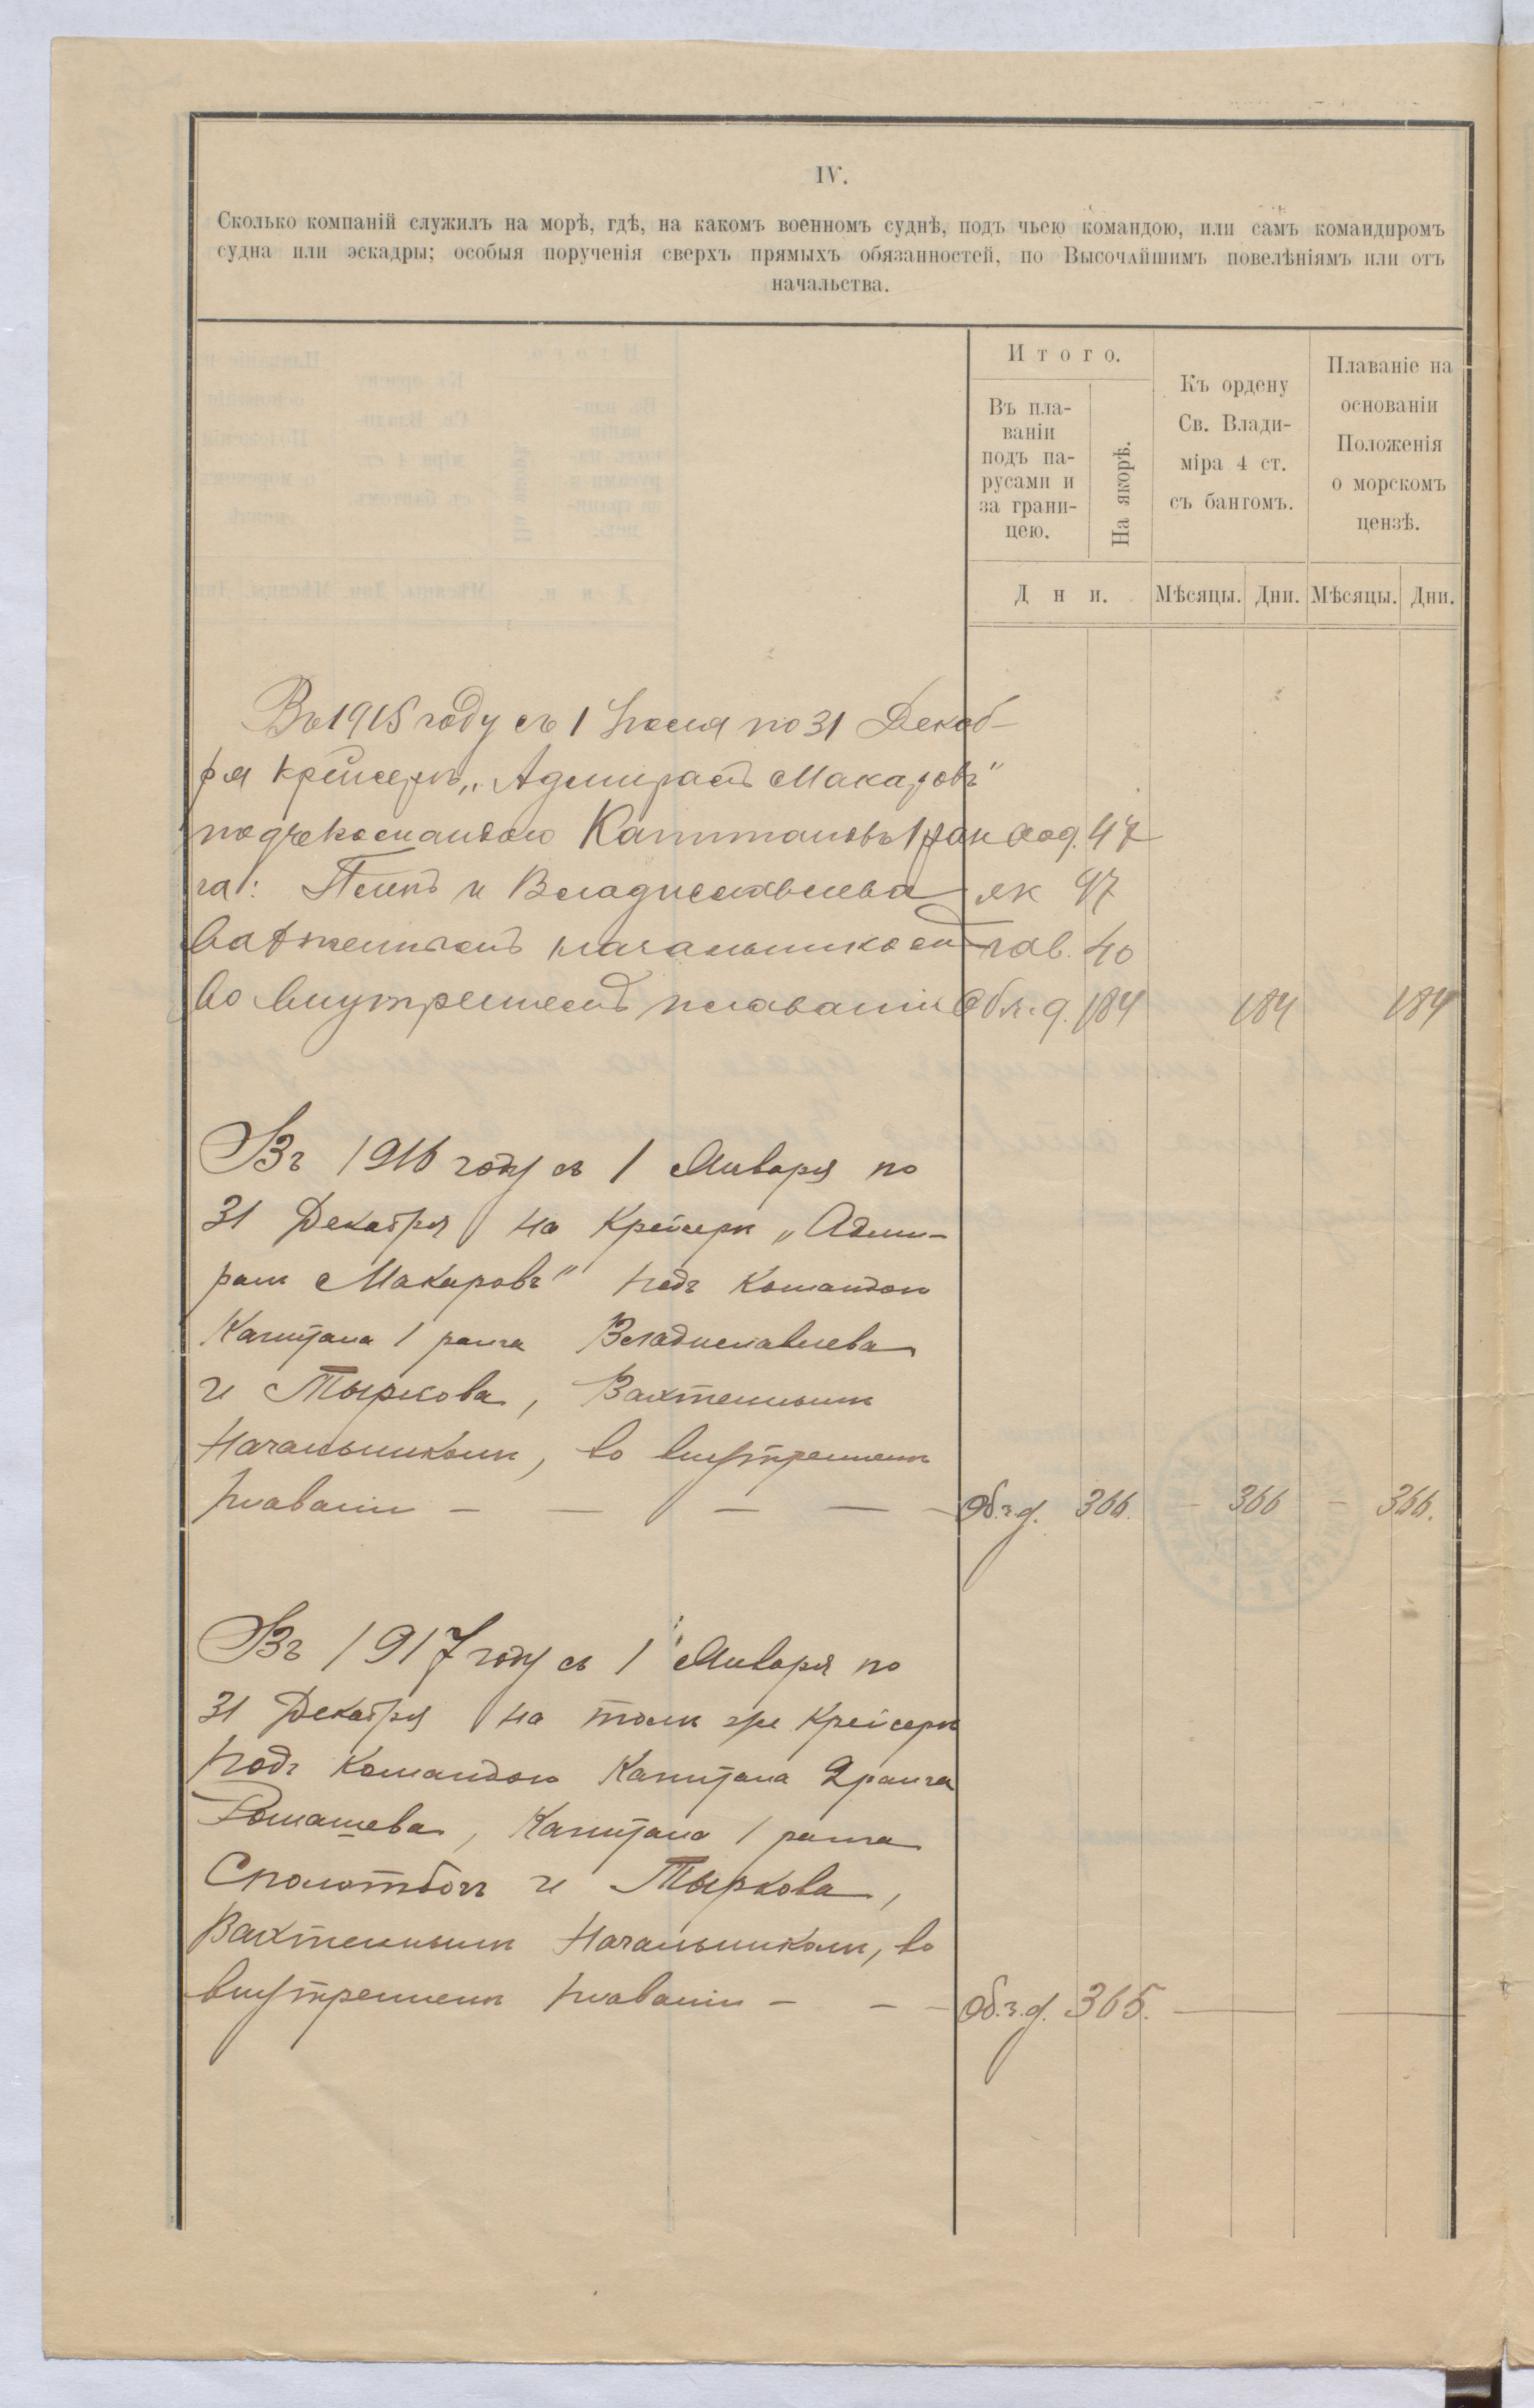 IV.
Сколько компаній служилъ на морѣ, гдѣ, на какомъ военномъ суднѣ, подъ чьею командою, или самъ командиромъ
судна или эскадры; особыя порученія сверхъ прямыхъ обязанностей, по Высочайшимъ повелѣніямъ или отъ
начальства.
Итого.
Въ пла-
ваніи
подъ па-
русами и
за грани-
цею.
На якорѣ.
Къ ордену
Св. Влади-
міра 4 ст.
съ бантомъ.
Плаваніе на
основаніи
Положенія
о морскомъ
цензѣ.
Дни.
Мѣсяцы. Дни. Мѣсяцы. Дни.
Въ 1915 году съ 1 Іюля по 31 Декаб-
ря крейсеръ „Адмиралъ Макаровъ"
подъ командою Капитановъ 1 ран ход. 47
га: и Владиславлева як 97
вахтеннымъ начальникомъ гав. 40
во внутреннемъ плаваніи Об.ч.д. 184 184 184
Въ 1916 году съ 1 Января по
31 Декабря на Крейсерѣ „Адми-
ралъ Макаровъ" подъ командою
Капитана 1 ранга Владиславлева
и Тыркова, Вахтеннымъ
Начальникомъ, во внутреннемъ
плаваніи — — — — Об.ч.д. 366. — 366 — 366.
Въ 1917 году съ 1 Января по
31 Декабря на томъ же Крейсерѣ
подъ командою Капитана 2 ранга
Ромашева, Капитана 1 ранга
и Тыркова,
Вахтеннымъ Начальникомъ, во
внутреннемъ плаваніи — — — Об.ч.д. 365. — —